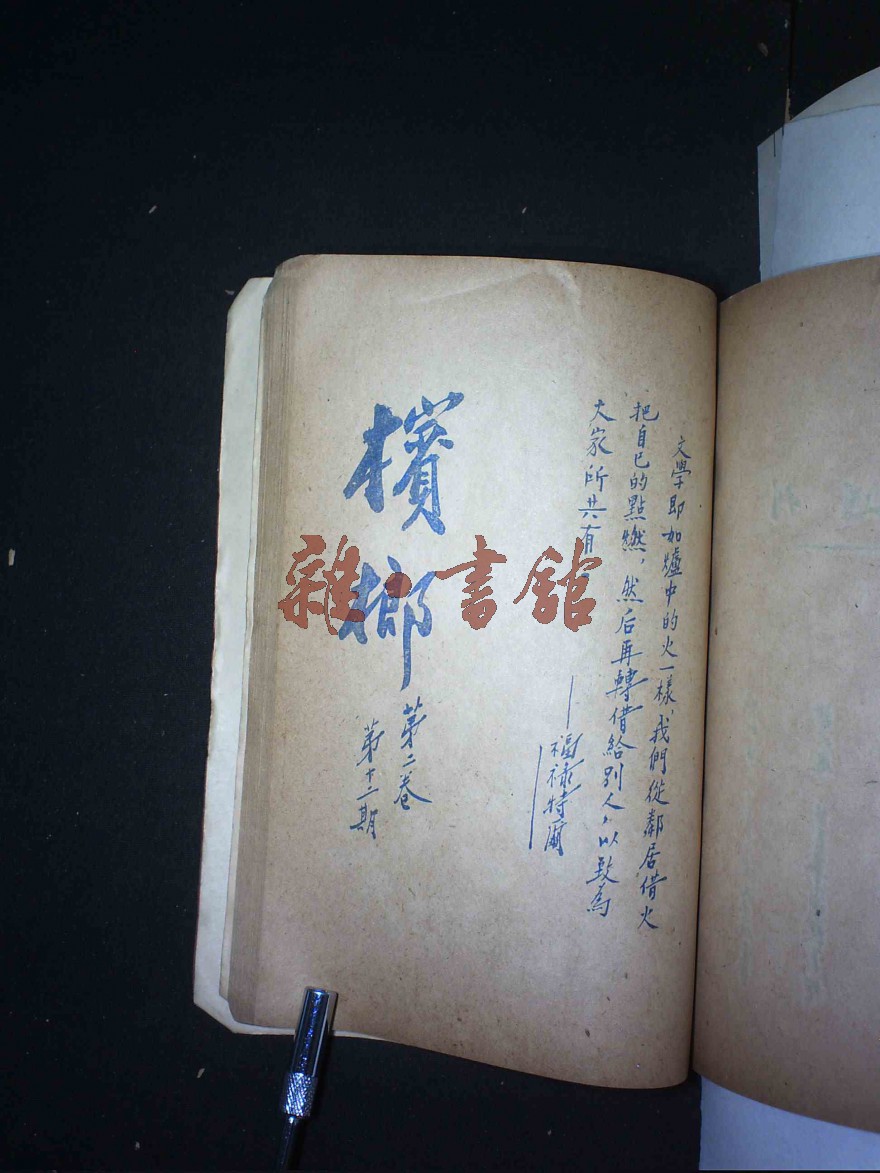 文學即如爐中的火一樣，我們從鄰居借火
把自己的點燃，然后再轉借給別人，以致為
大家所共有
——福祿特爾
檳榔
第二卷
第十二期
雜·書館